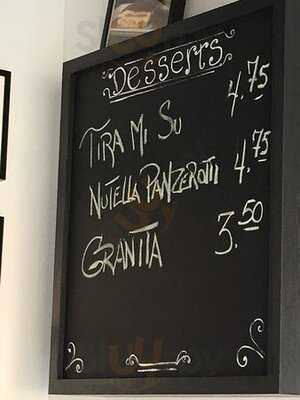 Desserts
TIRA MI SU 4.75
NUTELLA PANZEROTTI 4.75
GRANITA 3.50